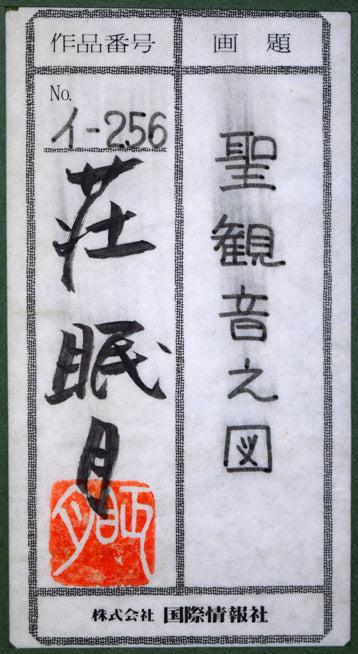 作品番号
画題
No.
イ-256
聖観音之図
荘 眠月
眠月
株式会社 国際情報社